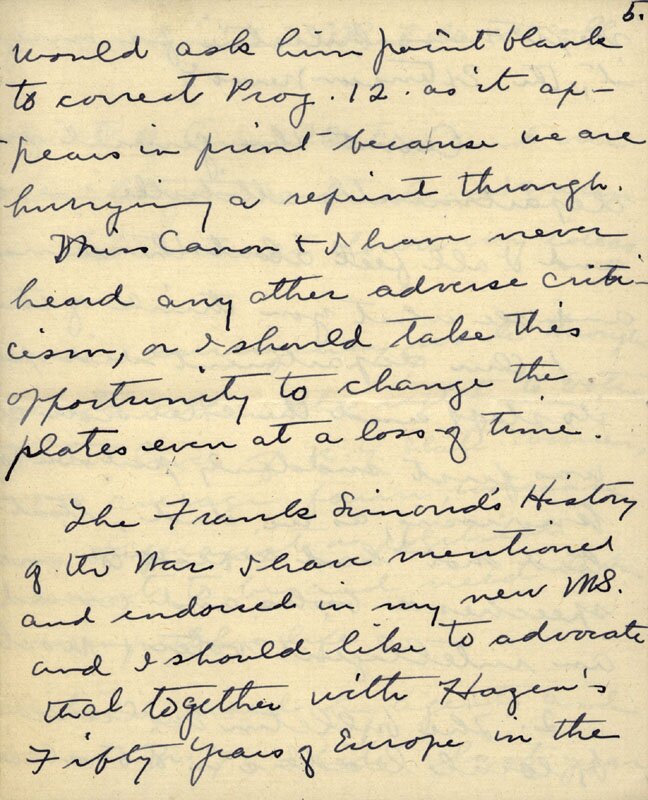 5.
would ask him point blank
to correct Prog. 12. as it ap-
pears in print because we are
hurrying a reprint through.
Miss Canon & I have never
heard any other adverse criti-
cism, or I should take this
opportunity to change the
plates even at a loss of time.
The Frank Simond's History
of the War I have mentioned
and endorsed in my new MS.
and I should like to advocate
that together with Hazen's
Fifty Years of Europe in the